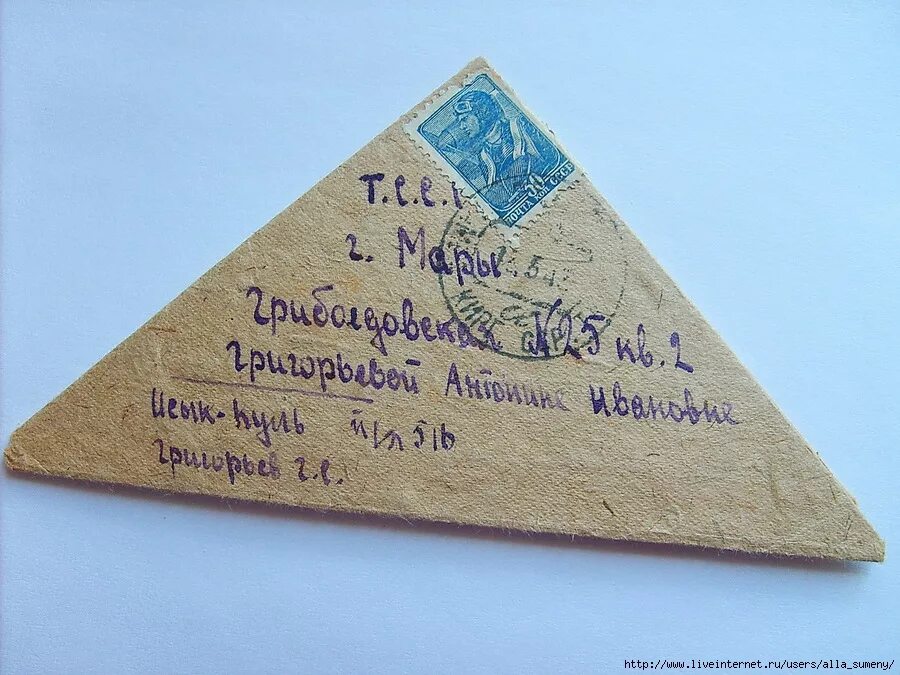 30
ПОЧТА СССР
Т.С.С.
г. Мары
Грибоедовская №25 кв. 2
Григорьевой Антонине Ивановне
Исык-Куль п/я 5/6
Григорьев Г.С.
http://www.liveinternet.ru/users/alla_sumeny/